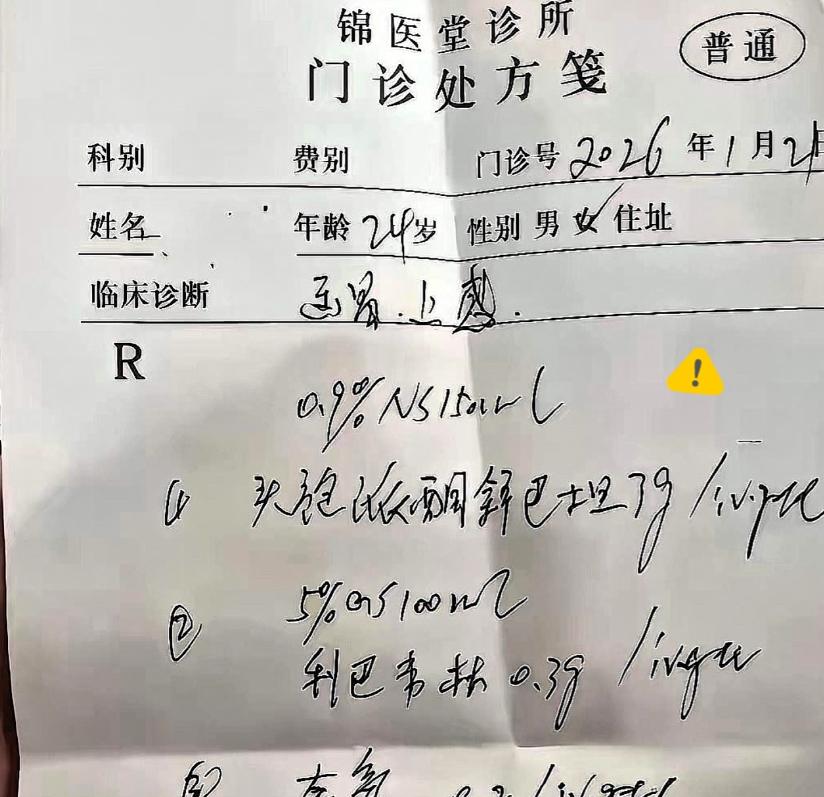 锦医堂诊所
门诊处方笺
普通
科别 费别 门诊号 2026 年 1 月 21 日
姓名 年龄 24 岁 性别 男 女 ✓ 住址
临床诊断 上感.
R
0.9% NS 150ml
① 头孢哌酮舒巴坦 3g / iv.gtt
5% GS 100ml
② 利巴韦林 0.3g / iv.gtt